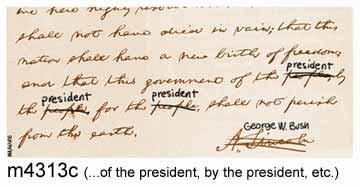 we here highly resolve
shall not have died in vain; that this
nation shall have a new birth of freedom,
president
and that this government of the people, by
president president
the people, for the people, shall not perish
from the earth.
George W. Bush
A. Lincoln
m4313c (...of the president, by the president, etc.)